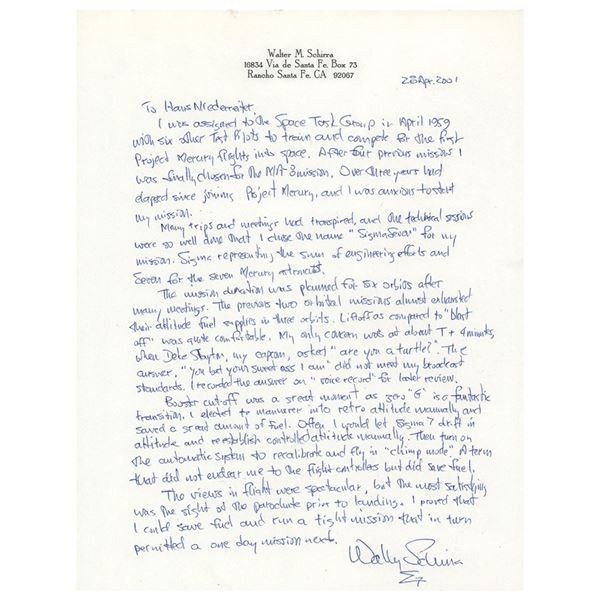 Walter M. Schirra
16834 Via de Santa Fe, Box 73
Rancho Santa Fe, CA 92067
28 Apr. 2001
To Hans Niedermeiter,
I was assigned to the Space Task Group in April 1959
with six other Test Pilots to train and compete for the first
Project Mercury flights into space. After four previous missions I
was finally chosen for the MA-8 mission. Over three years had
elapsed since joining Project Mercury, and I was anxious to start
my mission.
Many trips and meetings had transpired, and the technical sessions
were so well done that I chose the name "Sigma Seven" for my
mission. Sigma representing the sum of engineering efforts and
Seven for the seven Mercury astronauts.
The mission duration was planned for six orbits after
many meetings. The previous two orbital missions almost exhausted
their attitude fuel supplies in three orbits. Liftoff as compared to "blast
off" was quite comfortable. My only concern was at about T+4 minutes,
when Deke Slayton, my capcom, asked "are you a turtle?". The
answer, "you bet your sweet ass I am" did not meet my broadcast
standards. I recorded the answer on "voice record" for later review.
Booster cut-off was a great moment as zero "G" is a fantastic
transition. I elected to maneuver into retro attitude manually and
saved a great amount of fuel. Often I would let Sigma 7 drift in
attitude and re-establish controlled attitude manually. Then turn on
the automatic system to recalibrate and fly in "chimp mode". A term
that did not endear me to the flight controllers but did save fuel.
The views in flight were spectacular, but the most satisfying
was the sight of the parachute prior to landing. I proved that
I could save fuel and run a tight mission that in turn
permitted a one day mission next.
Wally Schirra
Σ7